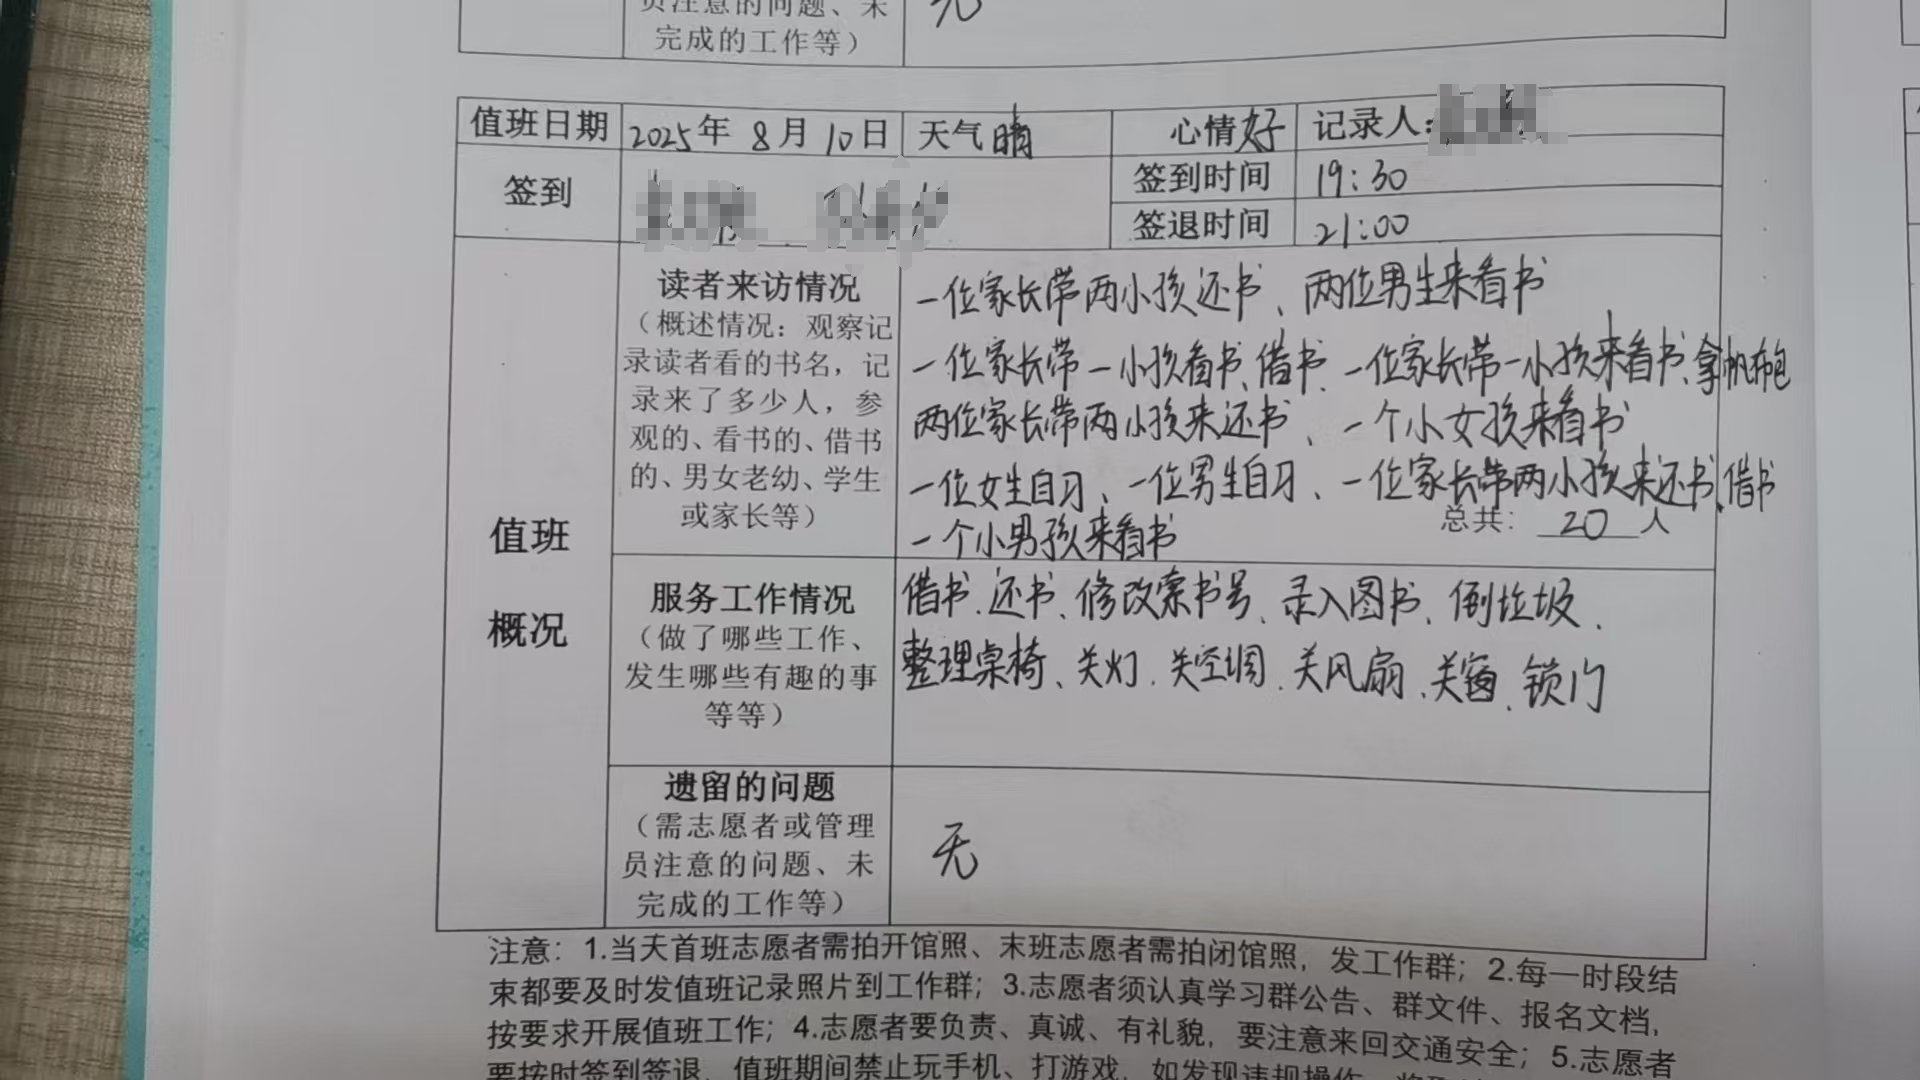 员注意的问题、未
完成的工作等）
无
值班日期 2025年 8月 10日 天气晴 心情好 记录人：
签到 签到时间 19:30
签退时间 21:00
读者来访情况
（概述情况：观察记
录读者看的书名，记
录来了多少人，参
观的、看书的、借书
的、男女老幼、学生
或家长等）
一位家长带两小孩还书、两位男生来看书
一位家长带一小孩看书、借书、一位家长带一小孩来看书、拿帆布包
两位家长带两小孩来还书、一个小女孩来看书
一位女生自习、一位男生自习、一位家长带两小孩来还书、借书
一个小男孩来看书
总共：20人
值班
概况
服务工作情况
（做了哪些工作、
发生哪些有趣的事
等等）
借书、还书、修改索书号、录入图书、倒垃圾、
整理桌椅、关灯、关空调、关风扇、关窗、锁门
遗留的问题
（需志愿者或管理
员注意的问题、未
完成的工作等）
无
注意：1.当天首班志愿者需拍开馆照、末班志愿者需拍闭馆照，发工作群；2.每一时段结
束都要及时发值班记录照片到工作群；3.志愿者须认真学习群公告、群文件、报名文档，
按要求开展值班工作；4.志愿者要负责、真诚、有礼貌，要注意来回交通安全；5.志愿者
要按时签到签退，值班期间禁止玩手机、打游戏，如发现违规操作，